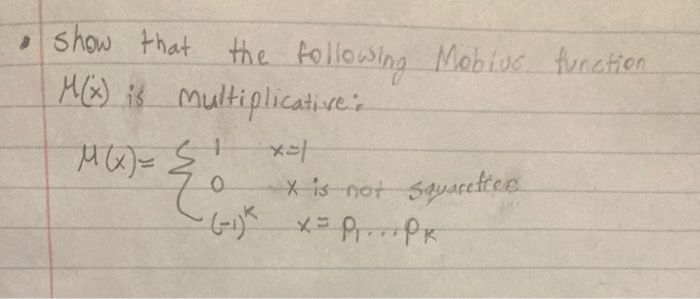 • show that the following Mobius function
μ(x) is multiplicative:
μ(x) = { 1 x=1
0 x is not squarefree
(-1)^k x = p₁...pₖ